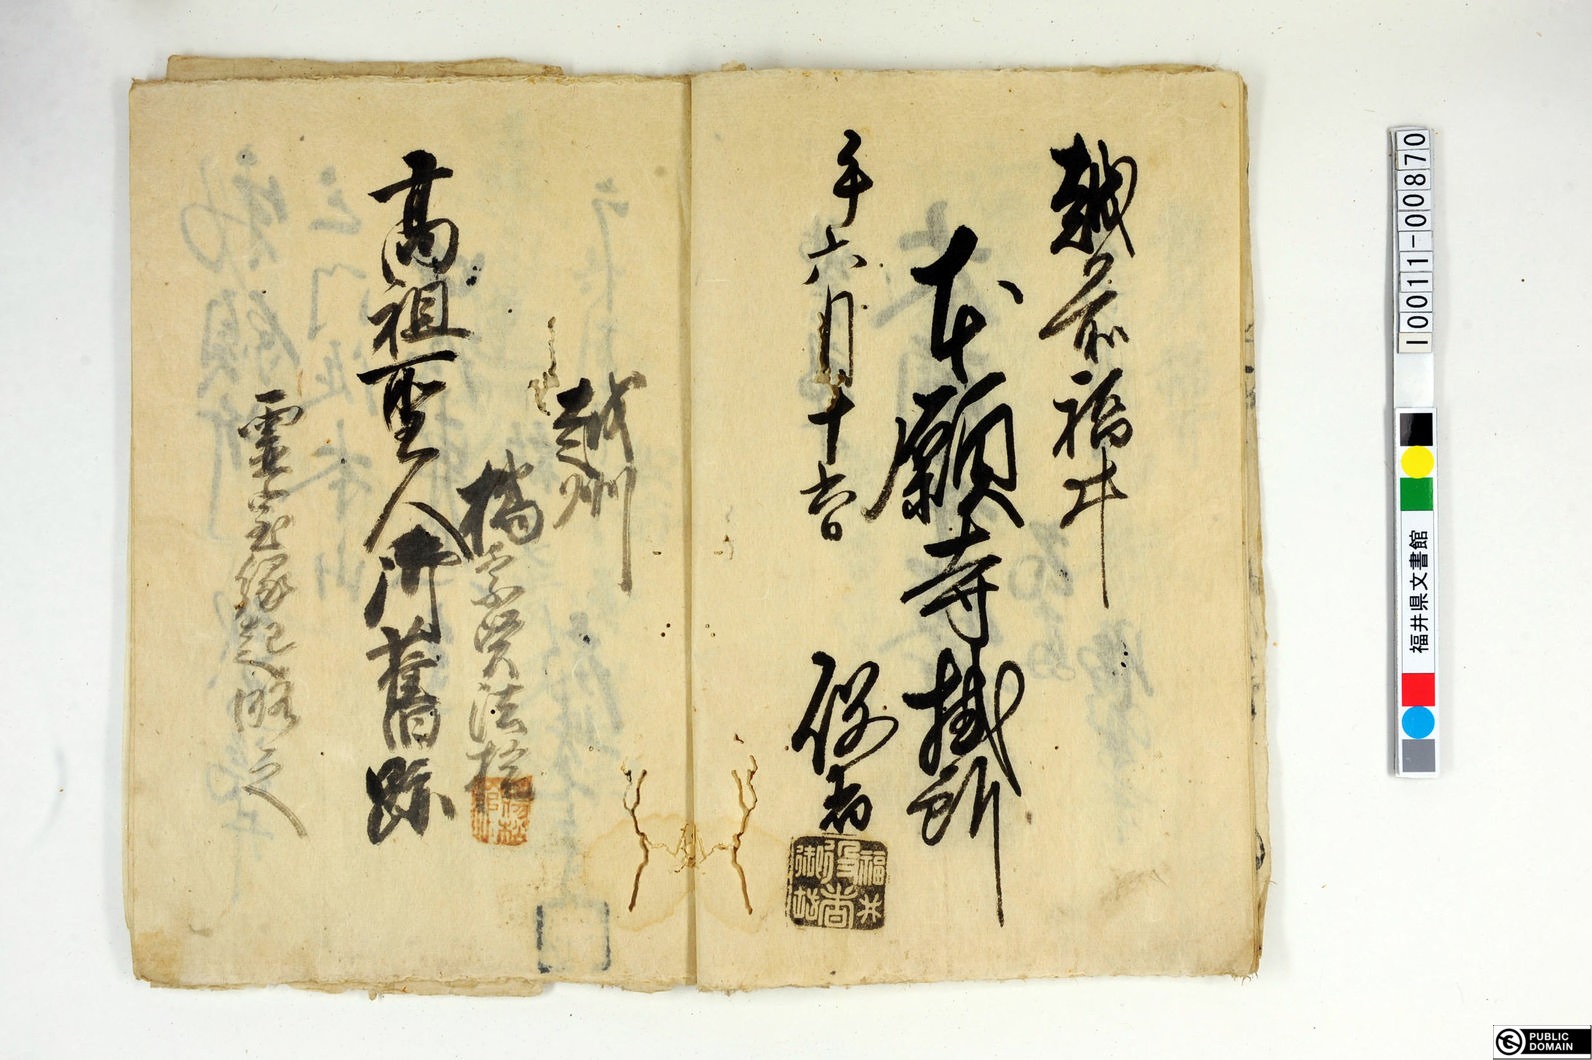 越前福井
本願寺掛所
午六月十六日
役者
福井
役者
御坊
越州
橘宗賢法橋
高祖聖人御舊跡
霊宝縁起略之
10011-00870
福井県文書館
PUBLIC
DOMAIN